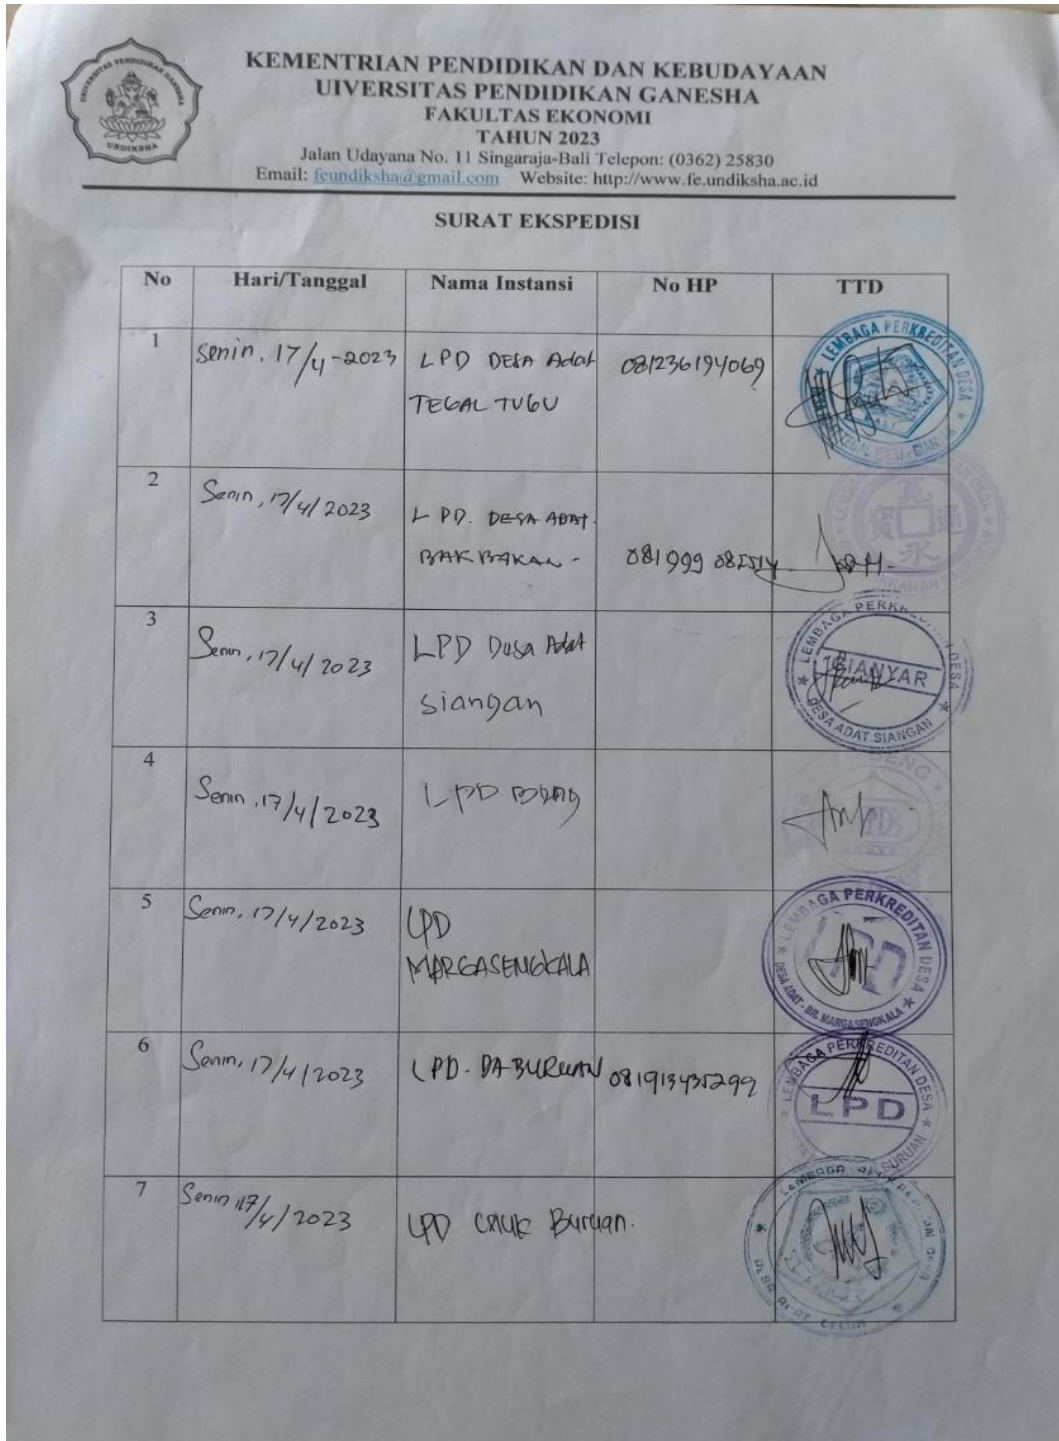 UNIVERSITAS PENDIDIKAN GANESHA
UNDIKSHA
KEMENTRIAN PENDIDIKAN DAN KEBUDAYAAN
UIVERSITAS PENDIDIKAN GANESHA
FAKULTAS EKONOMI
TAHUN 2023
Jalan Udayana No. 11 Singaraja-Bali Telepon: (0362) 25830
Email: feundiksha@gmail.com Website: http://www.fe.undiksha.ac.id
SURAT EKSPEDISI
No Hari/Tanggal Nama Instansi No HP TTD
1 Senin, 17/4-2023 LPD DESA Adat 081236194069
TEGAL TUGU
LEMBAGA PERKREDITAN DESA
2 Senin, 17/4/2023 LPD. DESA ADAT.
BAKBAKAN - 081999
寬 通 永 寳
3 Senin, 17/4/2023 LPD Desa Adat
Siangan
LEMBAGA PERKREDITAN DESA
GIANYAR
DESA ADAT SIANGAN
4 Senin, 17/4/2023 LPD
5 Senin, 17/4/2023 LPD
MARGASENGKALA
LEMBAGA PERKREDITAN DESA
LPD
DESA ADAT - BR. MARGASENGKALA
6 Senin, 17/4/2023 LPD. DA BURUAN 081913435299
LEMBAGA PERKREDITAN DESA
LPD
BURUAN
7 Senin 17/4/2023 LPD Buruan.
LEMBAGA
DESA ADAT